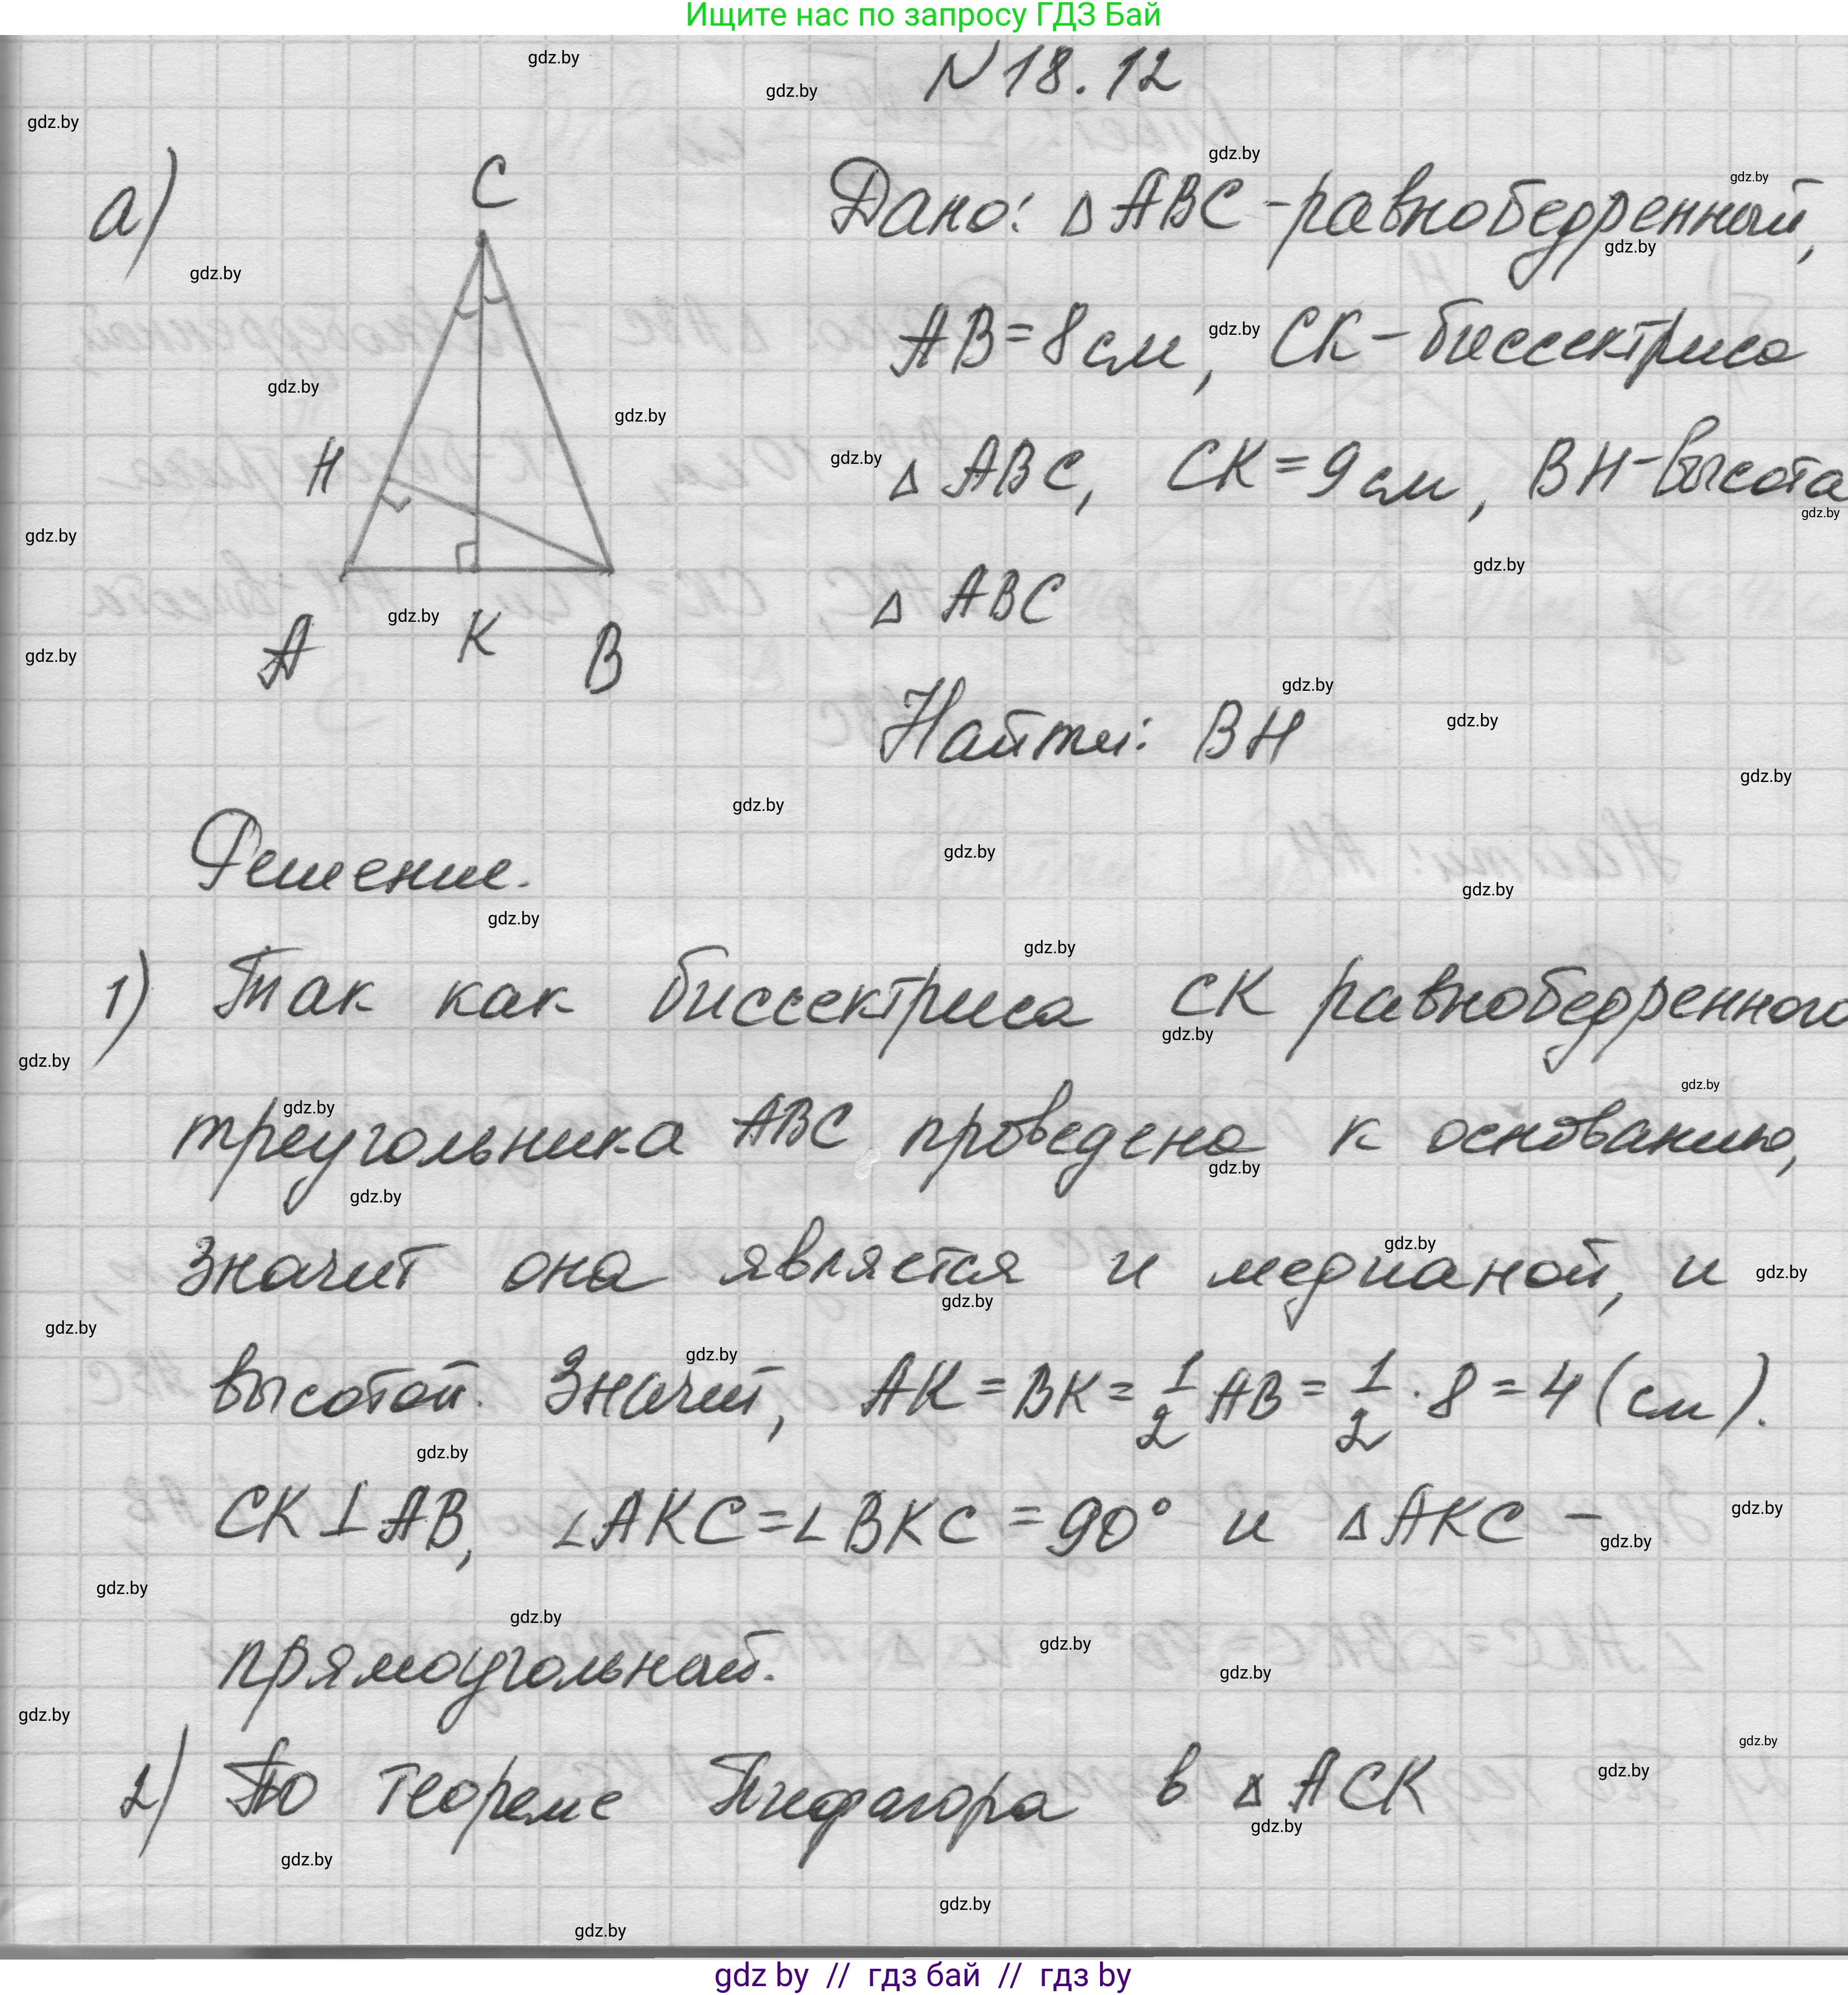 Ищите нас по запросу ГДЗ Бай
N 18.12
а)
C
H
A K B
Дано: △ ABC - равнобедренный,
AB = 8 см, CK - биссектриса
△ ABC, CK = 9 см, BH - высота
△ ABC
Найти: BH
Решение.
1) Так как биссектриса CK равнобедренного
треугольника ABC проведена к основанию,
значит она является и медианой, и
высотой. Значит, AK = BK = 1/2 AB = 1/2 · 8 = 4 (см).
CK ⊥ AB, ∠AKC = ∠BKC = 90° и △ AKC -
прямоугольный.
2) По теореме Пифагора в △ ACK
gdz by // гдз бай // гдз by